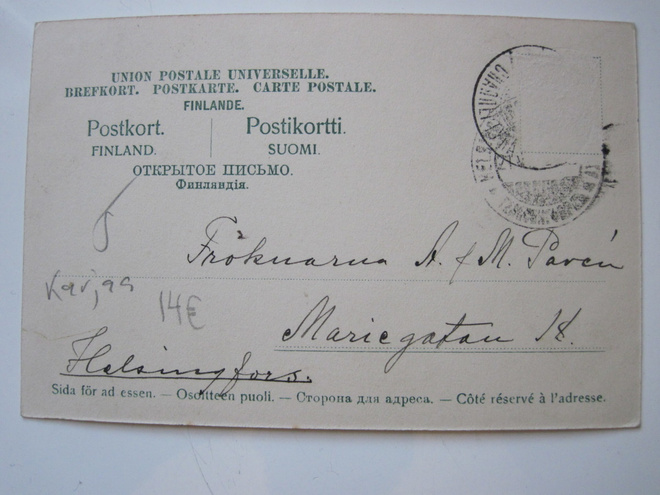 UNION POSTALE UNIVERSELLE.
BREFKORT. POSTKARTE. CARTE POSTALE.
FINLANDE.
Postkort.
FINLAND.
Postikortti.
SUOMI.
ОТКРЫТОЕ ПИСЬМО.
Финляндія.
Fröknarna A. & M. Pavén
Karjaa
14€
Mariegatan
Helsingfors.
Sida för ad essen. — Osoitteen puoli. — Сторона для адреса. — Côté réservé à l'adresse.